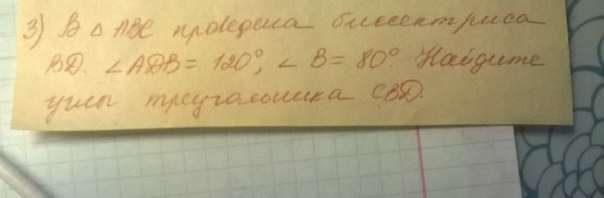 3) В △ ABC проведена биссектриса
BD. ∠ADB = 120°, ∠B = 80°. Найдите
углы треугольника CBD.